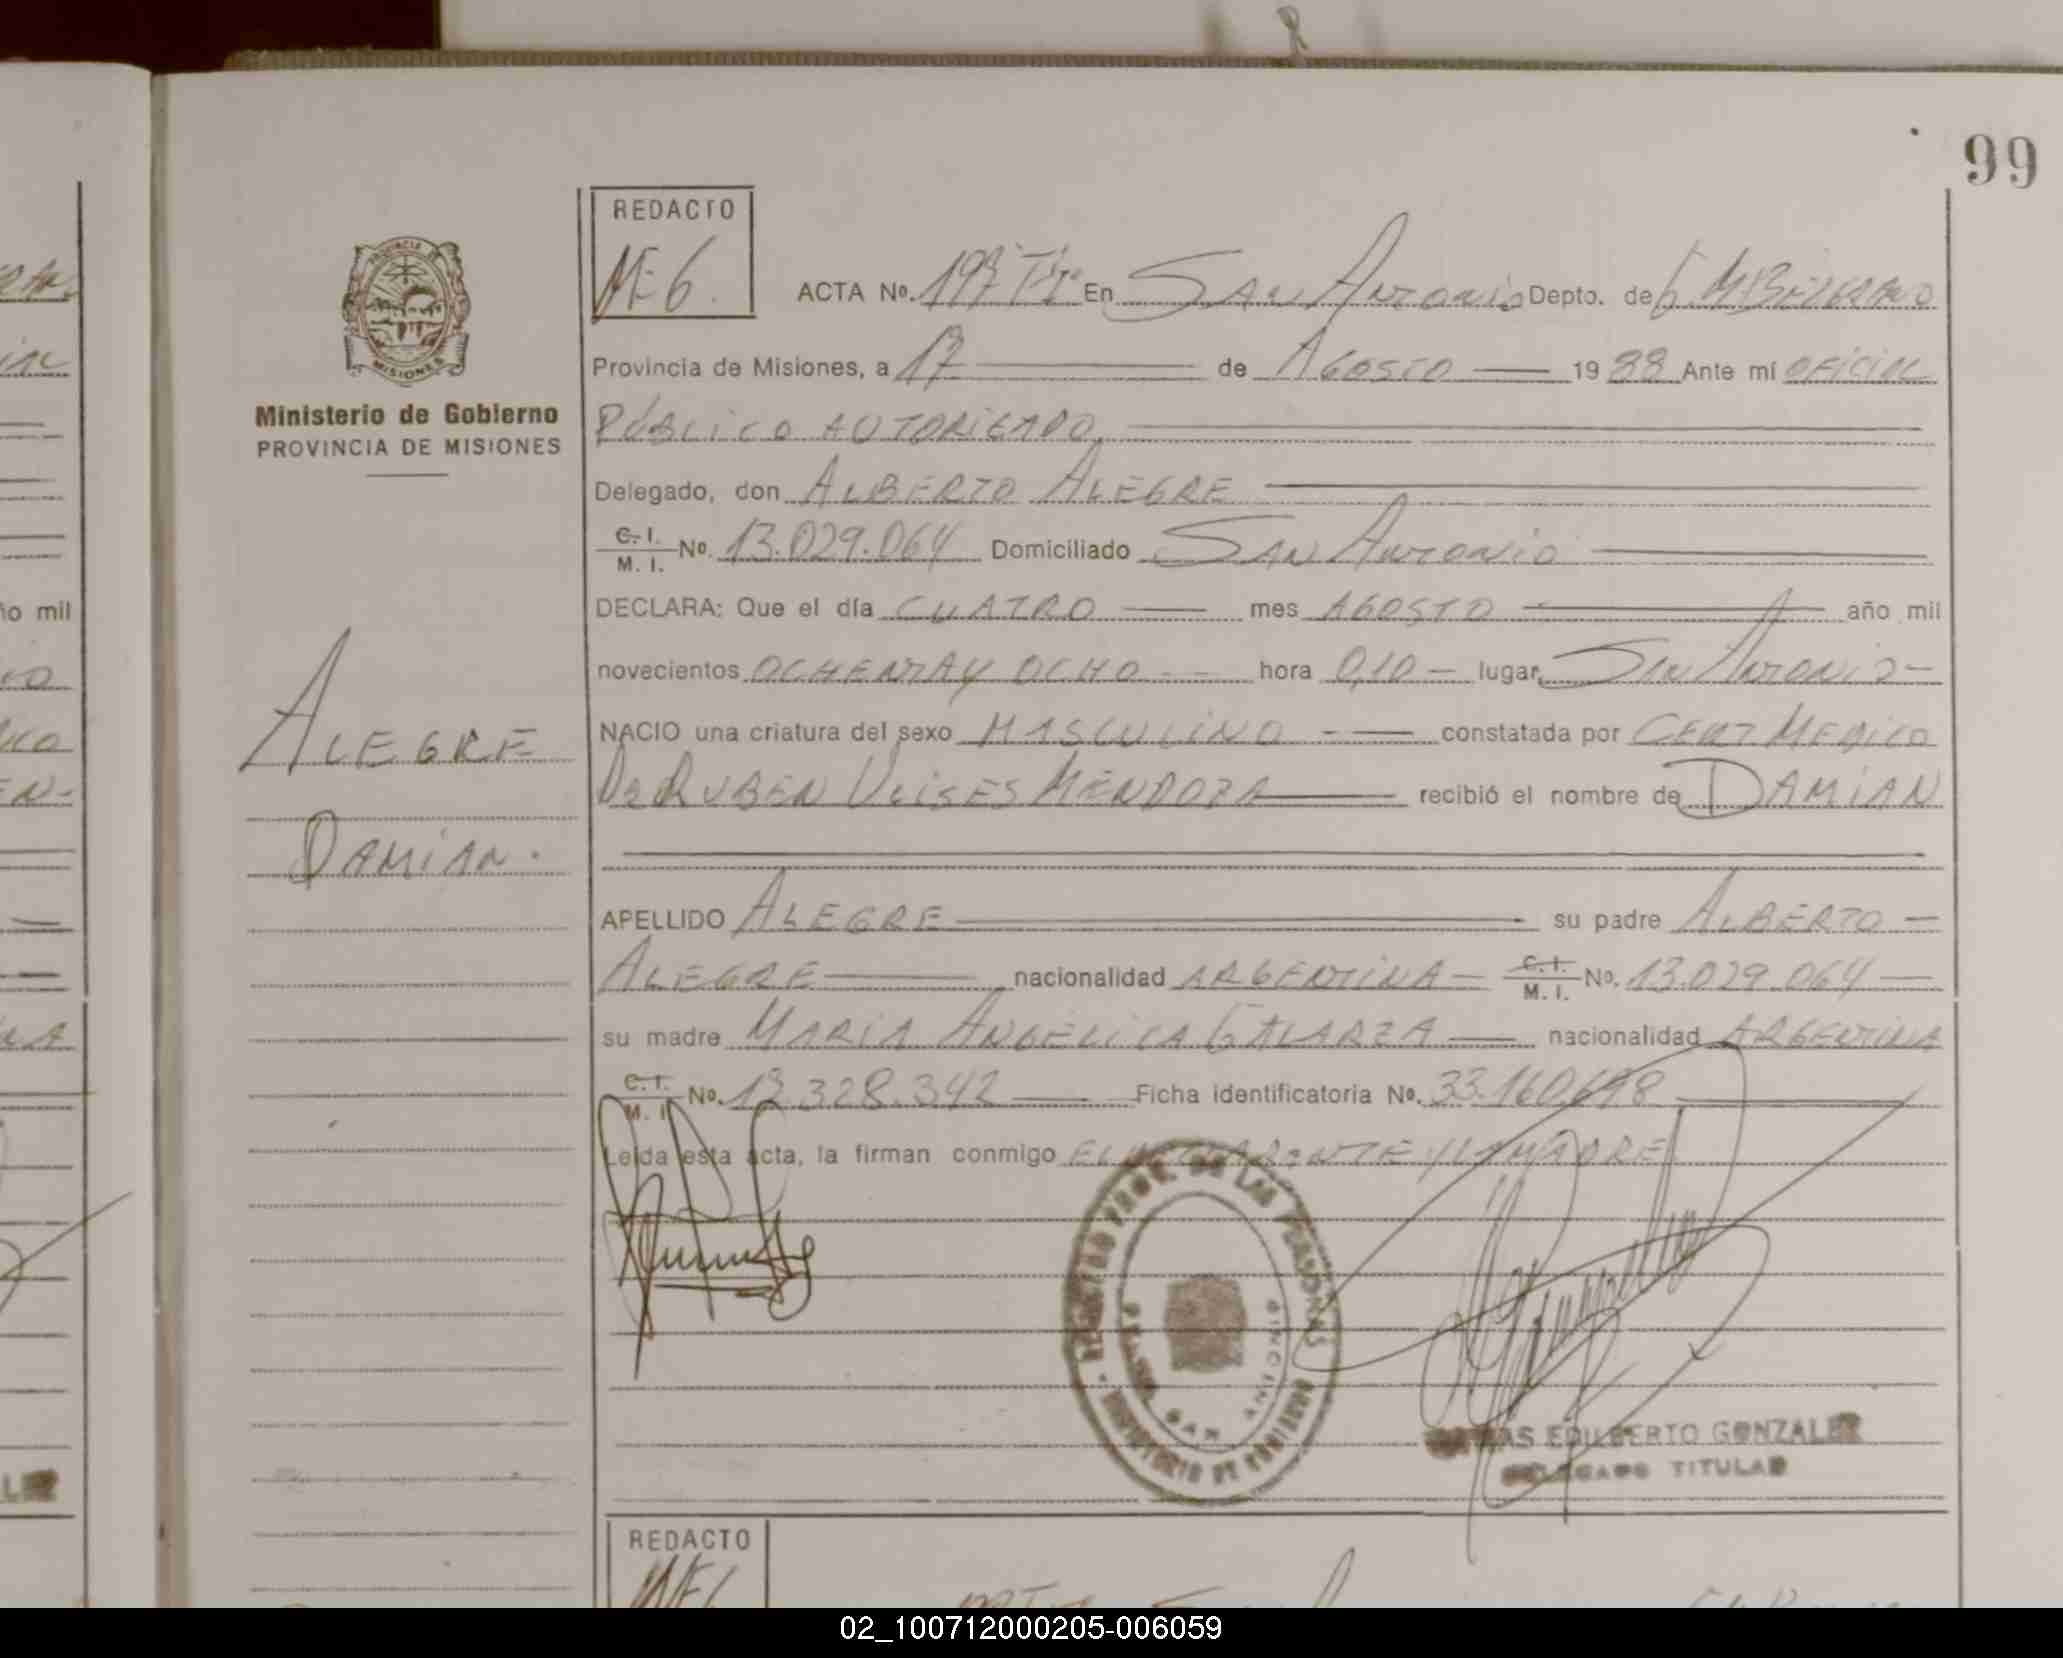 99
REDACTO
MEG.
ACTA Nº. 197 Tº Iº En San Antonio Depto. de G. M. Belgrano
Provincia de Misiones, a 17 de Agosto 1988 Ante mí OFICIAL
PÚBLICO AUTORIZADO
Delegado, don ALBERTO ALEGRE
C. I. M. I. No. 13.029.064 Domiciliado SAN ANTONIO
DECLARA: Que el día CUATRO mes AGOSTO año mil
novecientos OCHENTA Y OCHO hora 0,10 lugar SAN ANTONIO
NACIO una criatura del sexo MASCULINO constatada por CERT MEDICO
DR RUBEN ULISES MENDOZA recibió el nombre de DAMIAN
APELLIDO ALEGRE su padre ALBERTO
ALEGRE nacionalidad ARGENTINA C. I. M. I. No. 13.029.064
su madre MARIA ANGELICA GALARZA nacionalidad ARGENTINA
C. I. M. I. No. 12.328.342 Ficha identificatoria Nº. 33.160.698
Leída esta acta, la firman conmigo EL DECLARANTE Y LA MADRE
PROVINCIA DE MISIONES
Ministerio de Gobierno
PROVINCIA DE MISIONES
ALEGRE
DAMIAN.
REGISTRO PROV. DE LAS PERSONAS
SAN ANTONIO
EDILBERTO GONZALEZ
DELEGADO TITULAR
REDACTO
02_100712000205-006059